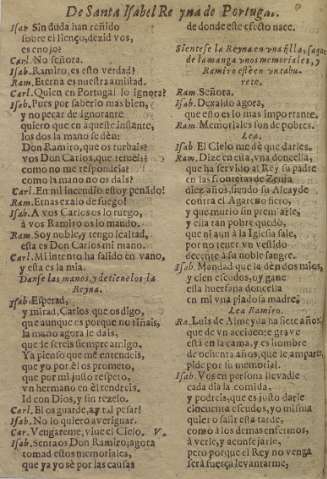 De Santa Isabel Reyna de Portugal.
Isab Sin duda han reñido
sobre el lienço, dezid vos,
es enojo?
Carl. No señora.
Isab. Ramiro, es esto verdad?
Ram. Eterna es nuestra amistad.
Carl. Quien en Portugal lo ignora?
Isab. Pues por saberlo mas bien,
y no pecar de ignorante
quiero que en aqueste instante,
los dos la mano se den:
Don Ramiro, que os turbais?
vos Don Carlos, que
como no me respondeis?
como la mano no os dais?
Carl. En mil incendios estoy penado!
Ram. Etnas exalo de fuego!
Isab. A vos Carlos os lo ruego,
à vos Ramiro os lo mando.
Ram. Soy noble, y tengo lealtad,
esta es Don Carlos mi mano.
Carl. Mi intento ha salido en vano,
y esta es la mia.
Danse las manos, y detienelos la
Reyna.
Isab. Esperad,
y mirad, Carlos que os digo,
que aunque es porque no riñais,
la mano agora le dais,
que le sereis siempre amigo.
Ya pienso que me entendeis,
que yo por èl os prometo,
que por mi justo respeto,
vn hermano en èl tendreis.
Id con Dios, y sin rezelo.
Carl. El os guarde, ay tal pesar!
Isab. No lo quiero averiguar.
Car. Vengareme, viue el Cielo. V.
Isab. Sentaos Don Ramiro, agora
tomad estos memoriales,
que ya yo sè por las causas
de donde este efecto nace.
Sientese la Reyna en vna silla, saque
de la manga vnos memoriales, y
Ramiro estè en vn tabu-
rete.
Ram. Señora.
Isab. Dexaldo agora,
que esto es lo mas importante.
Ram. Memoriales son de pobres.
Lea.
Isab El Cielo me dè que darles.
Ram. Dize en èsta, vna doncella,
que ha servido al Rey su padre
en las fronteras de
diez años, siendo su Alcayde
contra el Agareno fiero,
y que murio sin premiarle,
y ella tan pobre quedò,
que ni aun à la Iglesia sale,
por no tener vn vestido
decente à su noble sangre.
Isab. Mandad que la den dos mios,
y cien escudos, que gane
ella huerfana doncella
en mi vna piadosa madre.
Lea Ramiro.
Ra. Luis de Almeyda ha siete años,
que de vn accidente grave
està en la cama, y es hombre
de ochenta años, que le amparen
pide por su memorial.
Isab. Vos en persona llevadle
cada dia la comida,
y podreis, que es justo darle
cincuenta escudos, yo misma
quiero salir esta tarde,
como à los demas enfermos,
à verle, y aconsejarle,
pero porque el Rey no venga
serà fuerça levantarme,